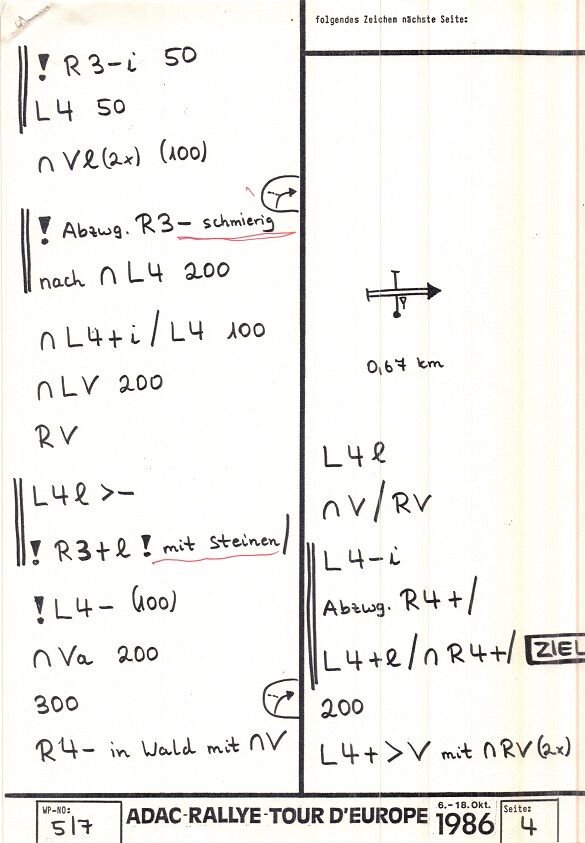 folgendes Zeichen nächste Seite:
! R3-i 50
L4 50
∩ Vl(2x) (100)
! Abzwg. R3- schmierig
nach ∩ L4 200
∩ L4+i / L4 100
∩ LV 200
RV
L4l >-
! R3+l ! mit Steinen/
! L4- (100)
∩ Va 200
300
R4- in Wald mit ∩V
0,67 km
L4l
∩ V / RV
L4-i
Abzwg. R4+/
L4+l / ∩ R4+/ ZIEL
200
L4+ >V mit ∩RV(2x)
WP-NO:
5/7
ADAC-RALLYE-TOUR D'EUROPE 6.-18.Okt. 1986
Seite:
4